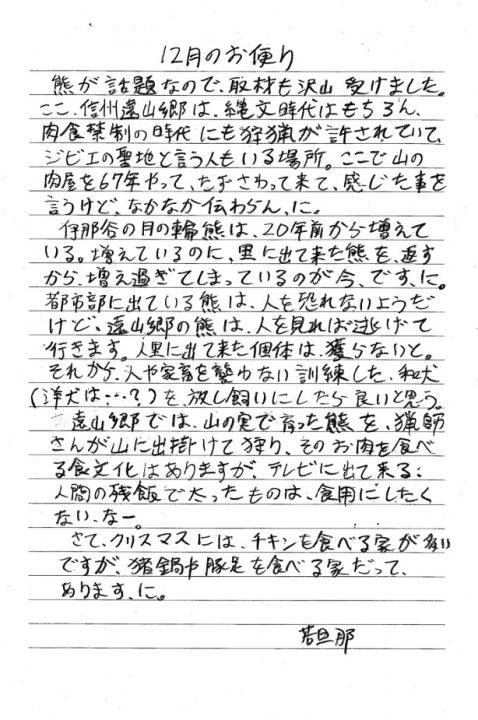 12月のお便り
熊が話題なので、取材も沢山受けました。
ここ、信州遠山郷は、縄文時代はもちろん、
肉食禁制の時代にも狩猟が許されていて、
ジビエの聖地と言う人もいる場所。ここで山の
肉屋を67年やって、たずさわって来て、感じた事を
言うけど、なかなか伝わらん、に。
伊那谷の月の輪熊は、20年前から増えて
いる。増えているのに、里に出て来た熊を、返す
から、増え過ぎてしまっているのが今、です、に。
都市部に出ている熊は、人を恐れないようだ
けど、遠山郷の熊は、人を見れば逃げて
行きます。人里に出て来た個体は、獲らないと。
それから、人や家畜を襲わない訓練した、和犬
(洋犬は…?)を、放し飼いにしたら良いと思う。
遠山郷では、山の実で育った熊を、猟師
さんが山に出掛けて狩り、そのお肉を食べ
る食文化はありますが、テレビに出て来る:
人間の残飯で太ったものは、食用にしたく
ない、なー。
さて、クリスマスには、チキンを食べる家が多い
ですが、猪鍋や豚足を食べる家だって、
あります、に。
若旦那